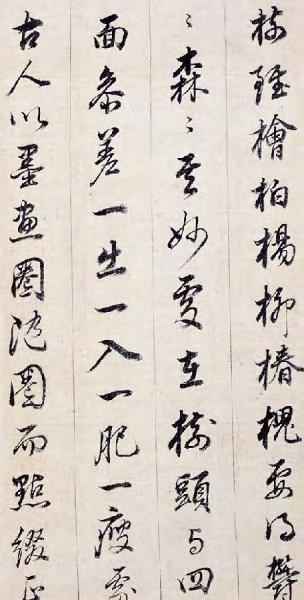 樹雖檜柏楊柳椿槐要得鬱
々森々其妙處在樹頭與四
面參差一出一入一肥一瘦處
古人以墨畫圈隨圈而點綴正